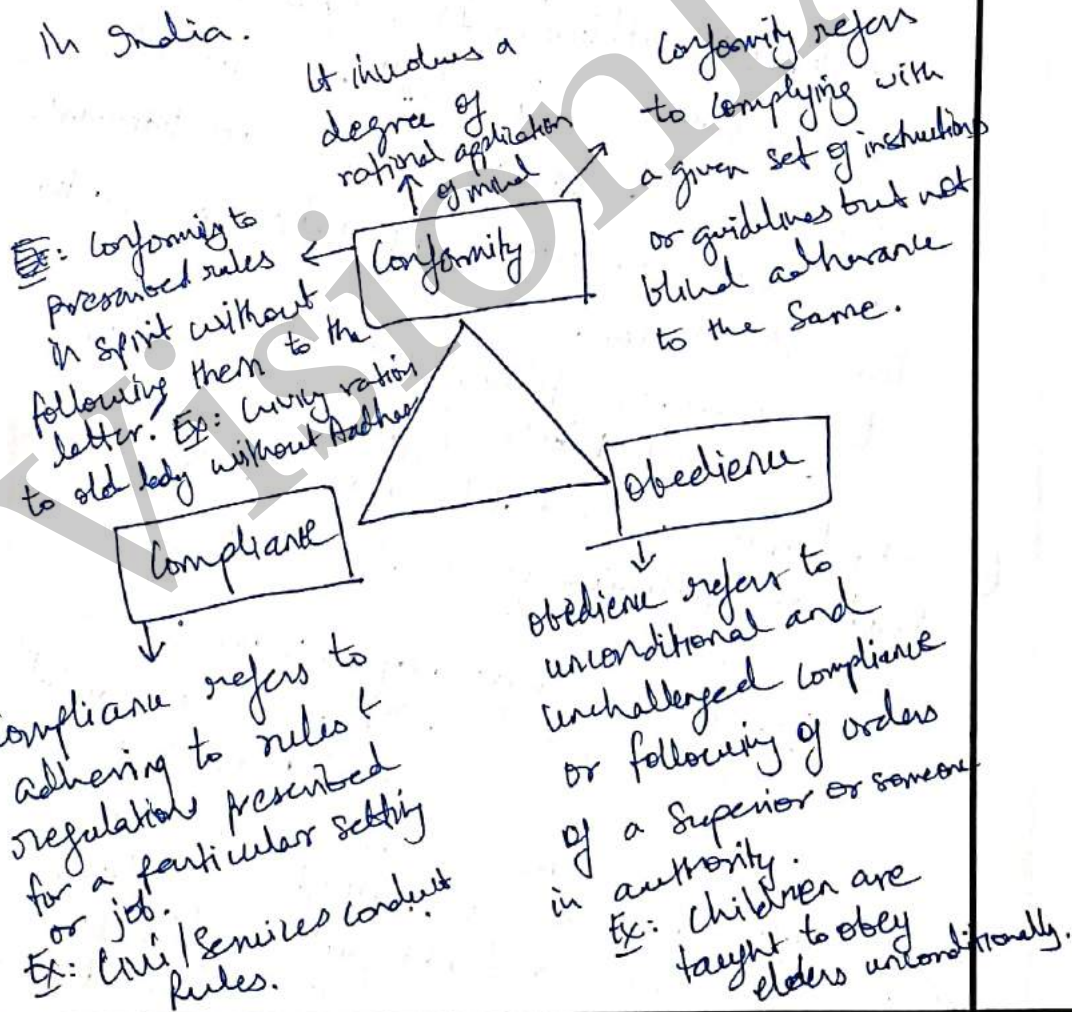 in India.
It involves a
degree of
rational application
of mind
Conformity refers
to complying with
a given set of instructions
or guidelines but not
blind adherance
to the same.
Ex: Conforming to
prescribed rules
in spirit without
following them to the
letter. Ex: Giving ration
to old lady without Aadhar
Conformity
Compliance
Obedience
Compliance refers to
adhering to rules &
regulations prescribed
for a particular setting
or job.
Ex: Civil Services Conduct
Rules.
obedience refers to
unconditional and
unchallenged compliance
or following of orders
of a superior or someone
in authority.
Ex: Children are
taught to obey
elders unconditionally.
Vision